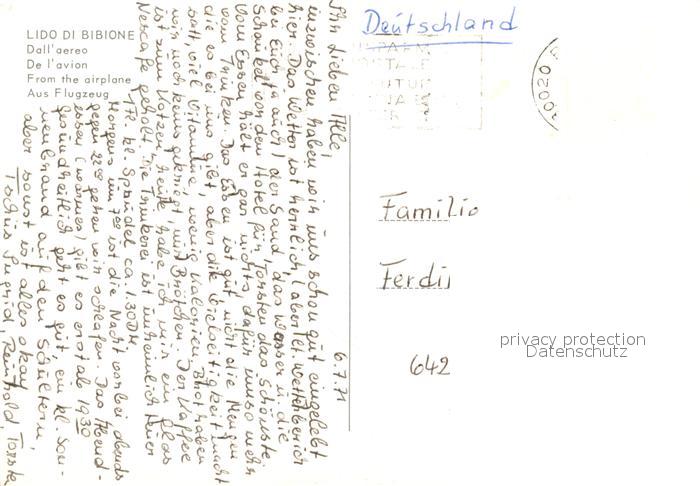 LIDO DI BIBIONE
Dall'aereo
De l'avion
From the airplane
Aus Flugzeug
6.7.71
Ihr Lieben Alle!
inzwischen haben wir uns schon gut eingelebt
hier. Das Wetter ist herrlich (aber lt. Wetterbericht
bei Euch auch) der Sand, das Wasser u. die
Schaukel vor dem Hotel für Torsten das Schönste.
Vom Essen hält er gar nichts, dafür umso mehr
vom Trinken. Das Essen ist gut, nicht die Mengen
die es bei uns gibt, aber die Vielseitigkeit macht
satt, viel Vitamine, wenig Kalorien. Brot haben
wir noch keins gekriegt, nur Brötchen. Der Kaffee
ist zum Kotzen, heute habe ich mir ein Glas
Nescafe geholt. Die Trinkerei ist unheimlich teuer
1 Fl. kl. Sprudel ca. 1.30 DM.
Morgens um 7⁰⁰ ist die Nacht vorbei abends
gegen 22⁰⁰ gehen wir schlafen. Das Abend-
essen (warmes) gibt es erst ab 19³⁰
gesundheitlich geht es gut, ein kl. Son-
nenbrand auf den Schultern,
aber sonst ist alles okay
Tschüs Sigrid, Reinhold, Torsten
Deutschland
0200
Familie
Ferdi
642
privacy protection
Datenschutz